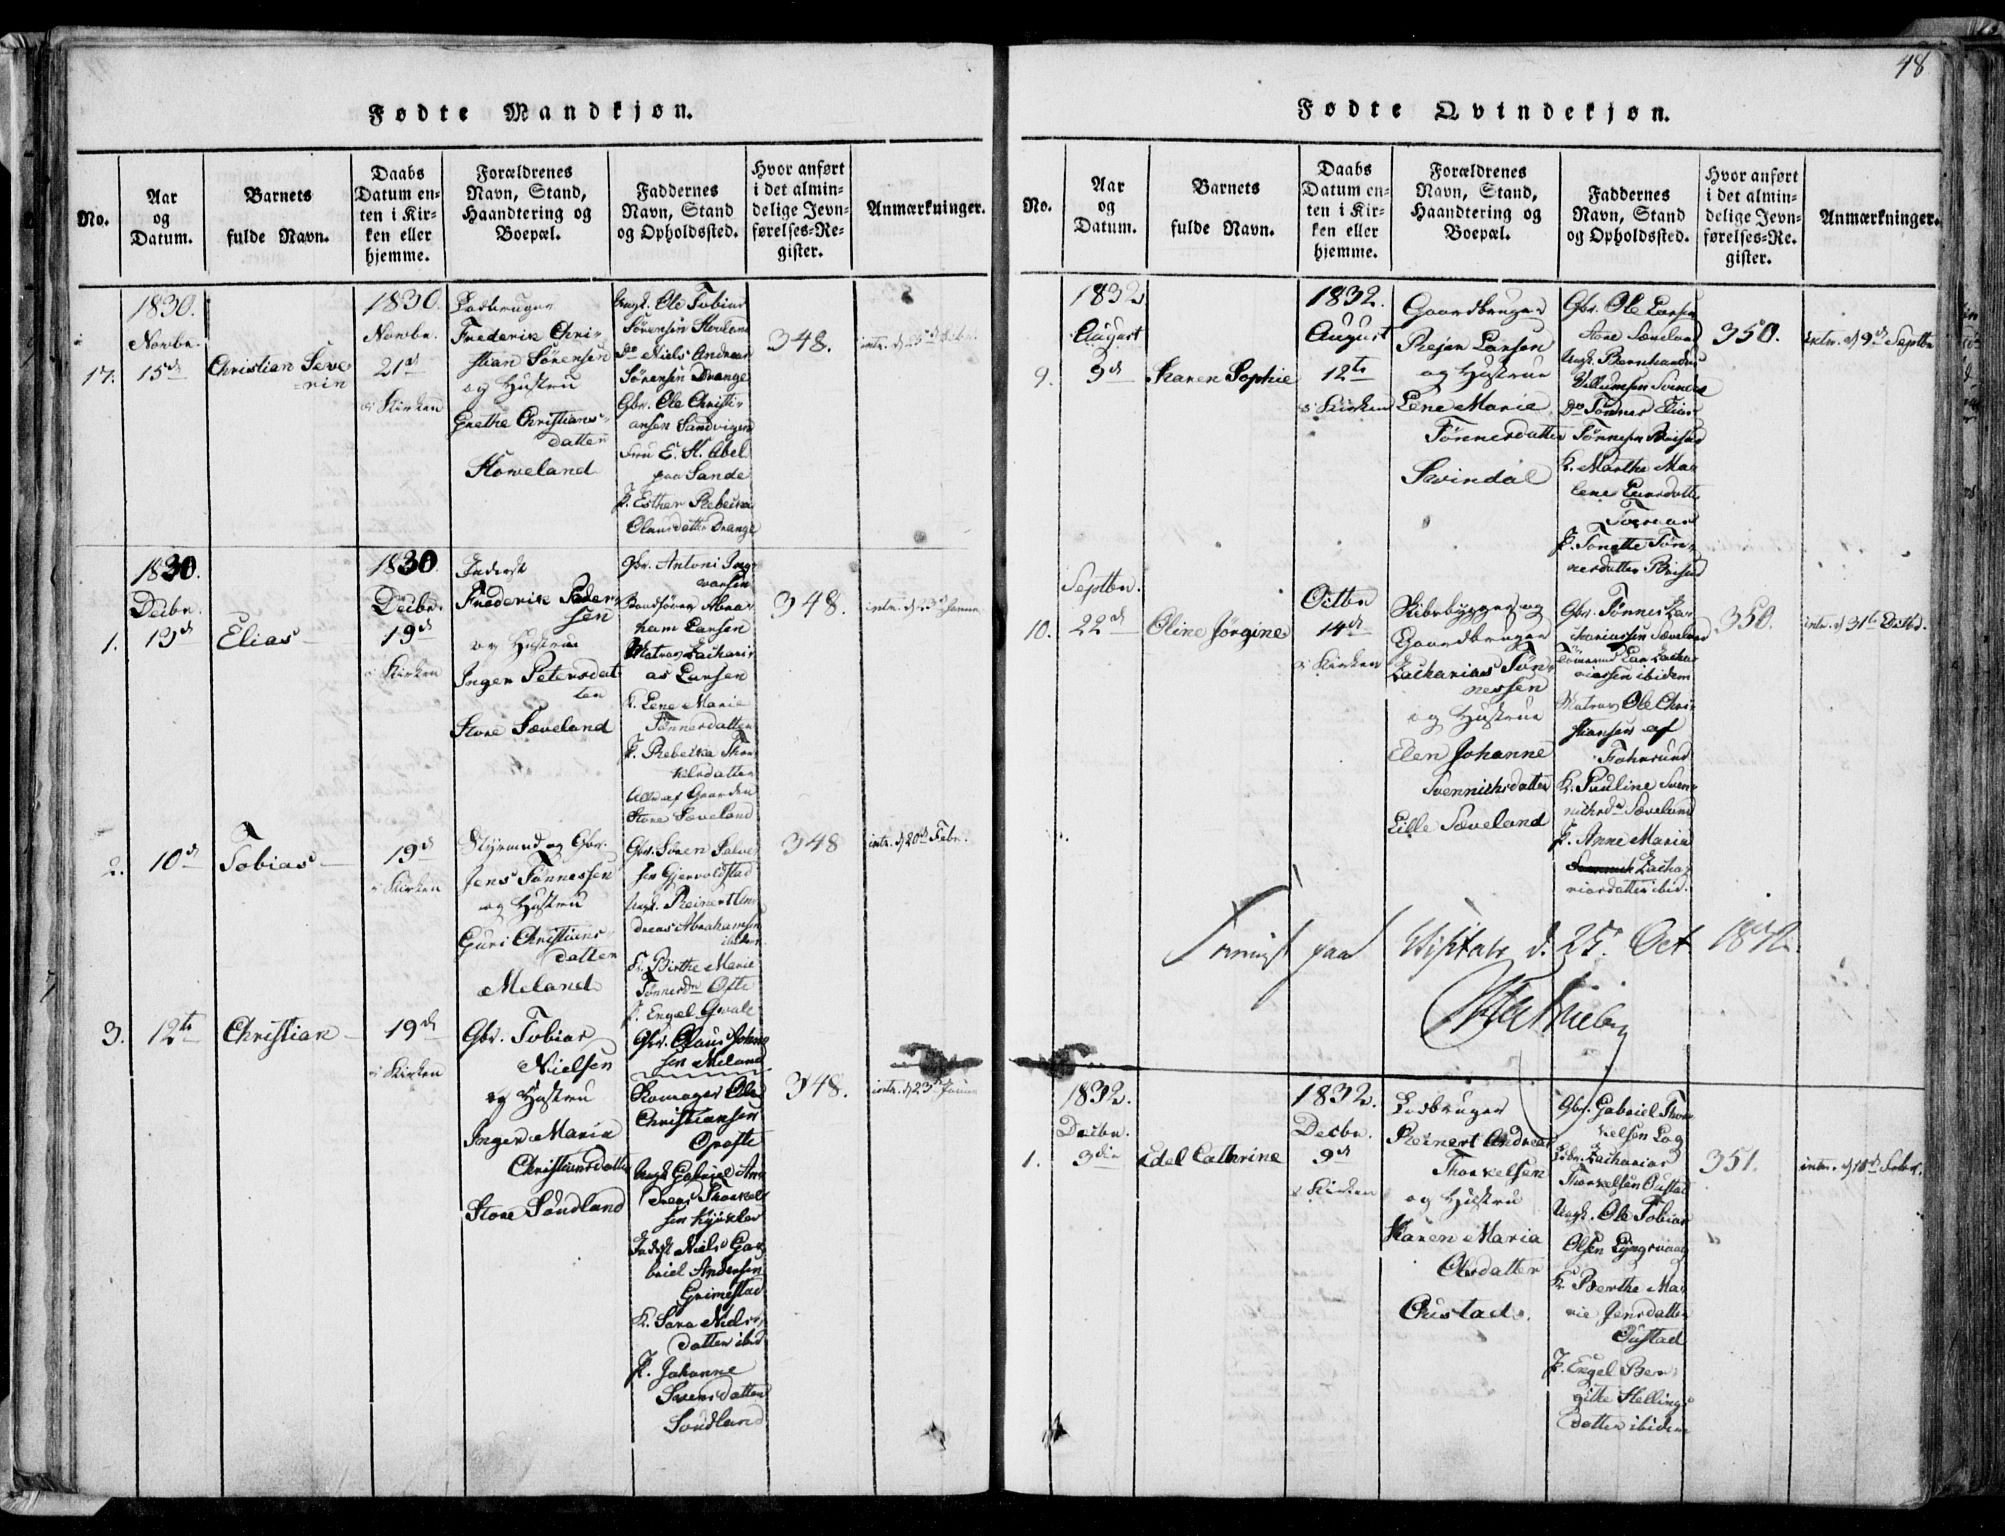 48
Fødte Mandkjøn.
No.
Aar
og
Datum.
Barnets
fulde Navn.
Daabs
Datum en-
ten i Kir-
ken eller
hjemme.
Forældrenes
Navn, Stand,
Haandtering og
Boepæl.
Faddernes
Navn, Stand
og Opholdssted.
Hvor anført
i det almin-
delige Jevn-
førelses-Re-
gister.
Anmærkninger.
17.
1830.
Novbr.
15d
Christian Seve-
rin
1830.
Novbr.
21d
i Kirken
Frederik Chri-
stian Sørensen
og Hustru
Grethe Christians-
datter
Skoveland
Ungk. Ole Tobias
Sørensen Skoveland
do Niels Andreas
Sørensen Drange
Gbr. Ole Christi-
ansen Sandvigen
Fru E. K. Abel
paa Sande
P. Esther Rebecka
Olausdatter Drange
348.
1.
1830.
Decbr.
13d
Elias
1830
Decbr.
19d
i Kirken
Inderst
Frederik Peder-
sen
og Hustru
Inger Petersdat-
ter
Store Sæveland
Gbr. Antoni Ing-
varsen
Baadfører Abra-
ham Larsen
Matros Zachari-
as Larsen
K. Lene Marie
Tønnesdatter
P. Rebecka Thor-
kelsdatter
Alle af Gaarden
Store Sæveland
348.
2.
10d
Tobias
19d
i Kirken
Styrmand og Gbr.
Jens Tønnessen
og Hustru
Guri Christians-
datter
Meland
Gbr. Søren Salve-
sen Gjervoldstad
Ungk. Reinert An-
dreas Abrahamsen
ibidem
K. Birthe Marie
Tønnesdr Ofte
P. Engel Qvale
348
intr. d 20d Febr.
3.
12te
Christian
19d
i Kirken
Gbr. Tobias
Nielsen
og Hustru
Inger Maria
Christiansdatter
Store Sandland
Gbr. Claus John-
sen Meland
Skomager Ole
Christiansen
Opofte
Ungk Gabriel An-
dreas Thorkels-
sen
Inderst Niels Ga-
briel Andersen
Grimestad
K. Sara Niels-
datter ibid
P. Johanne
Svensdatter
Sandland
348.
intr. d 23d Januar
Fødte Qvindekjøn.
No.
Aar
og
Datum.
Barnets
fulde Navn.
Daabs
Datum en-
ten i Kir-
ken eller
hjemme.
Forældrenes
Navn, Stand,
Haandtering og
Boepæl.
Faddernes
Navn, Stand
og Opholdssted.
Hvor anført
i det almin-
delige Jevn-
førelses-Re-
gister.
Anmærkninger.
9.
1832
August
9d
Karen Sophie
1832.
August
12te
i Kirken
Gaardbruger
Rejer Larsen
og Hustrue
Lene Marie
Tønnesdatter
Svindal
Gbr. Ole Larsen
Store Sæveland
Ungk. Bernhardus
Villumsen Svindal
do Tønnes Elias
Tønnesen Briseid
K. Marthe Ma-
lene Larsdatter
P. Tonette Tøn-
nesdatter Briseid
350.
intr. d 9d Septbr
10.
Septbr.
22d
Oline Jørgine
Octbr
14d
i Kirken
Skibsbygger og
Gaardbruger
Zacharias Tøn-
nessen
og Hustrue
Elen Johanne
Svennichsdatter
Lille Sæveland
Gbr. Tønnes Za-
chariassen Sæveland
Tømmermd Lars Zacha-
riassen ibidem
Matros Ole Chri-
stiansen af
Farhsund
K. Pauline Sven-
nichsdr Sæveland
P. Anne Maria
Zacha-
riasdatter ibid.
350.
intr. d 31te Octbr.
paa Visitats d. 25. Oct
1.
1832.
Decbr.
3die
Edel Cathrine
1832.
Decbr.
9d
i Kirken
Reinert Andreas
Thorkelsen
og Hustru
Karen Maria
Olsdatter
Oustad.
Gbr. Gabriel Thor-
kelsen Log
Zacharias
Thorkelsen Oustad
Ungk. Ole Tobias
Olsen Lyngsvaag
K. Berthe Ma-
rie Jensdatter
Oustad
P. Engel Ber-
gitte Stellings-
datter ibidem
351.